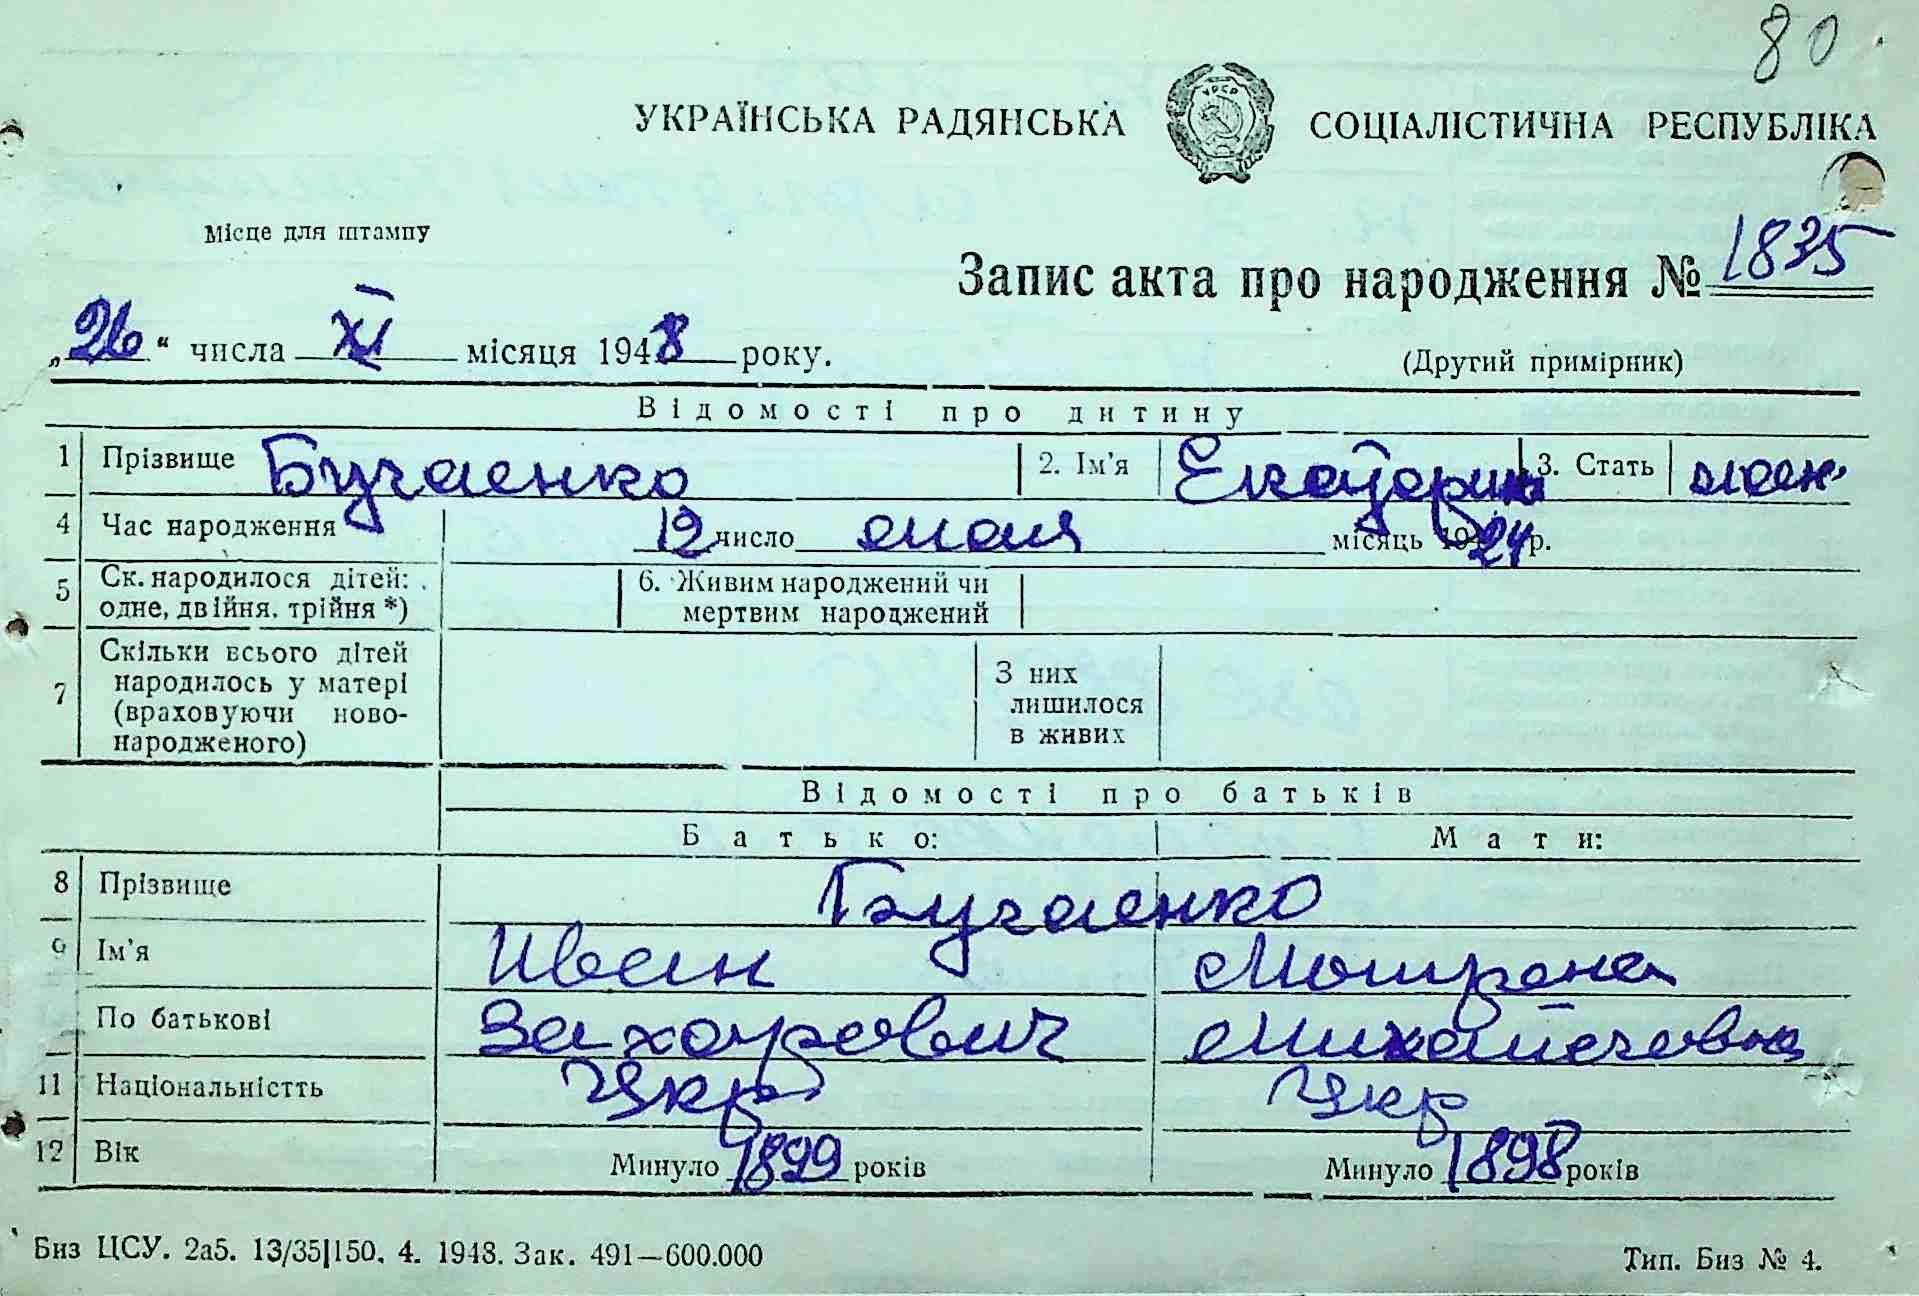 80
УКРАЇНСЬКА РАДЯНСЬКА СОЦІАЛІСТИЧНА РЕСПУБЛІКА
УРСР
Місце для штампу
Запис акта про народження № 1835
„26“ числа XI місяця 1948 року.
(Другий примірник)
Відомості про дитину
1 Прізвище Бугаенко 2. Ім'я Екатерина 3. Стать жен.
4 Час народження 12 число июля місяць 1924 р.
5 Ск. народилося дітей: 6. Живим народжений чи
одне, двійня, трійня *) мертвим народжений
7 Скільки всього дітей
народилось у матері
(враховуючи ново-
народженого)
З них
лишилося
в живих
Відомості про батьків
Батько: Мати:
8 Прізвище Бугаенко
9 Ім'я Иван Мотрена
По батькові Захарович Михайловна
11 Національністть Укр Укр
12 Вік Минуло 1899 років Минуло 1898 років
Биз ЦСУ. 2а5. 13/35|150. 4. 1948. Зак. 491—600.000 Тип. Биз № 4.